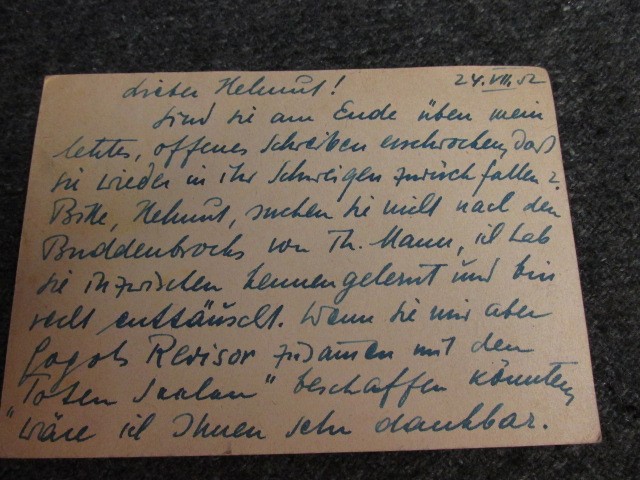 24. VII. 52
Lieber Helmut!
Sind sie am Ende über mein
letztes, offenes Schreiben erschrocken, daß
sie wieder in ihr Schweigen zurück fallen?
Bitte, Helmut, suchen sie nicht nach den
Buddenbrocks von Th. Mann, ich hab
sie inzwischen kennengelernt und bin
recht enttäuscht. Wenn sie mir aber
Gogols Revisor zusamen mit den
"Toten Seelen" beschaffen könnten,
wäre ich Ihnen sehr dankbar.